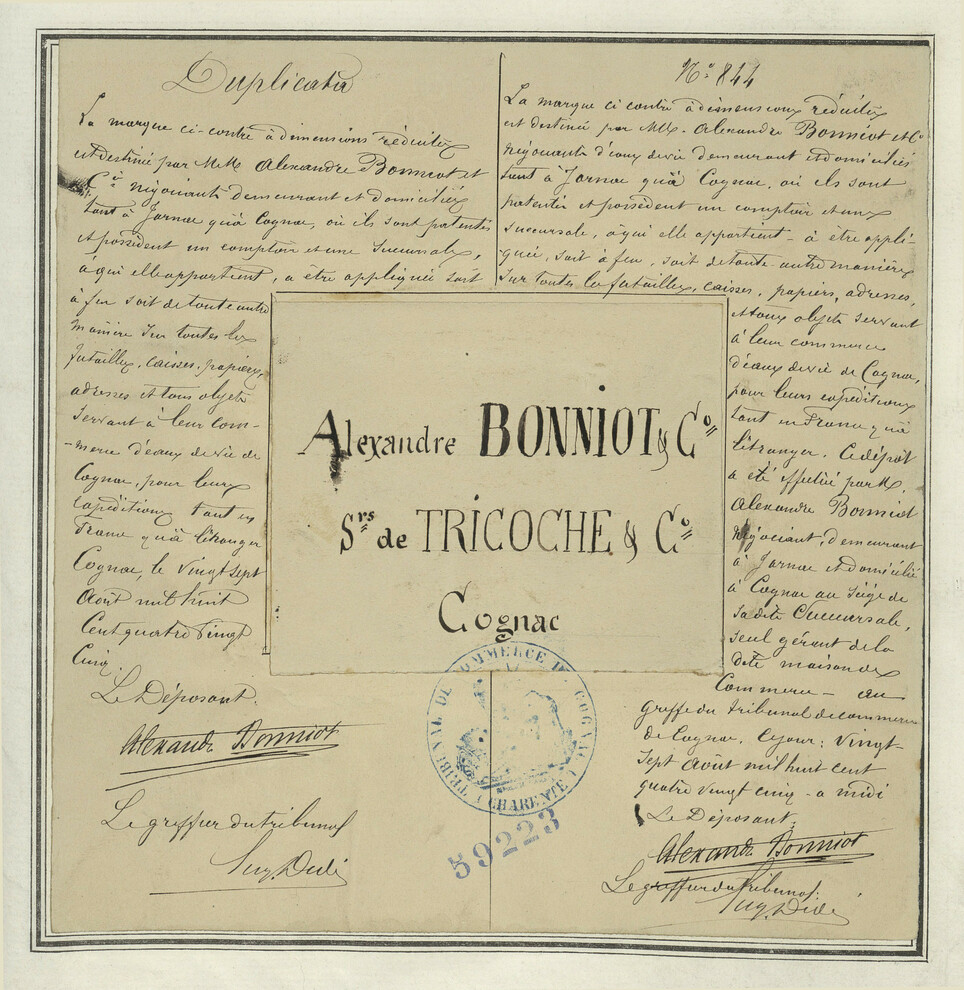 Duplicata
La marque ci-contre à dimensions réduites
est destinée par M.M. Alexandre Bonniot et
Cie négociants demeurant et domiciliés
tant à Jarnac qu'à Cognac, où ils sont patentés
et possèdent un comptoir et une succursale,
à qui elle appartient, a être appliquée soit
à feu soit de toute autre
manière sur toutes les
futailles, caisses, papiers,
adresses et tous objets
servant à leur com-
-merce d'eaux de vie de
Cognac, pour leurs
expéditions tant en
France qu'à l'étranger
Cognac, le vingt sept
Août mil huit
Cent quatre vingt
Cinq.
Le Déposant.
Alexandre Bonniot
Le greffier du tribunal
Eug. Didé
No 844
La marque ci contre à dimensions réduites
est destinée par MM. Alexandre Bonniot et Cie
négociants d'eaux de vie demeurant et domiciliés
tant à Jarnac qu'à Cognac, où ils sont
patentés et possèdent un comptoir et une
succursale, à qui elle appartient - à être appli-
quée, soit à feu, soit de toute autre manière
sur toutes les futailles, caisses, papiers, adresses,
et tous objets servant
à leur commerce
d'eaux de vie de Cognac,
pour leurs expéditions
tant en France qu'à
l'étranger. Ce dépôt
a été effectué par M.
Alexandre Bonniot
négociant, demeurant
à Jarnac et domicilié
à Cognac au siège de
sa dite Succursale,
seul gérant de la
dite maison de
Commerce - au
greffe du tribunal de commerce
de Cognac, ce jour: vingt-
sept Août mil huit cent
quatre vingt cinq - a midi
Le Déposant,
Alexandre Bonniot
Le greffier du tribunal:
Eug. Didé
Alexandre BONNIOT & Co
Srs de TRICOCHE & Co
Cognac
TRIBUNAL DE COMMERCE DE COGNAC
(CHARENTE)
59223